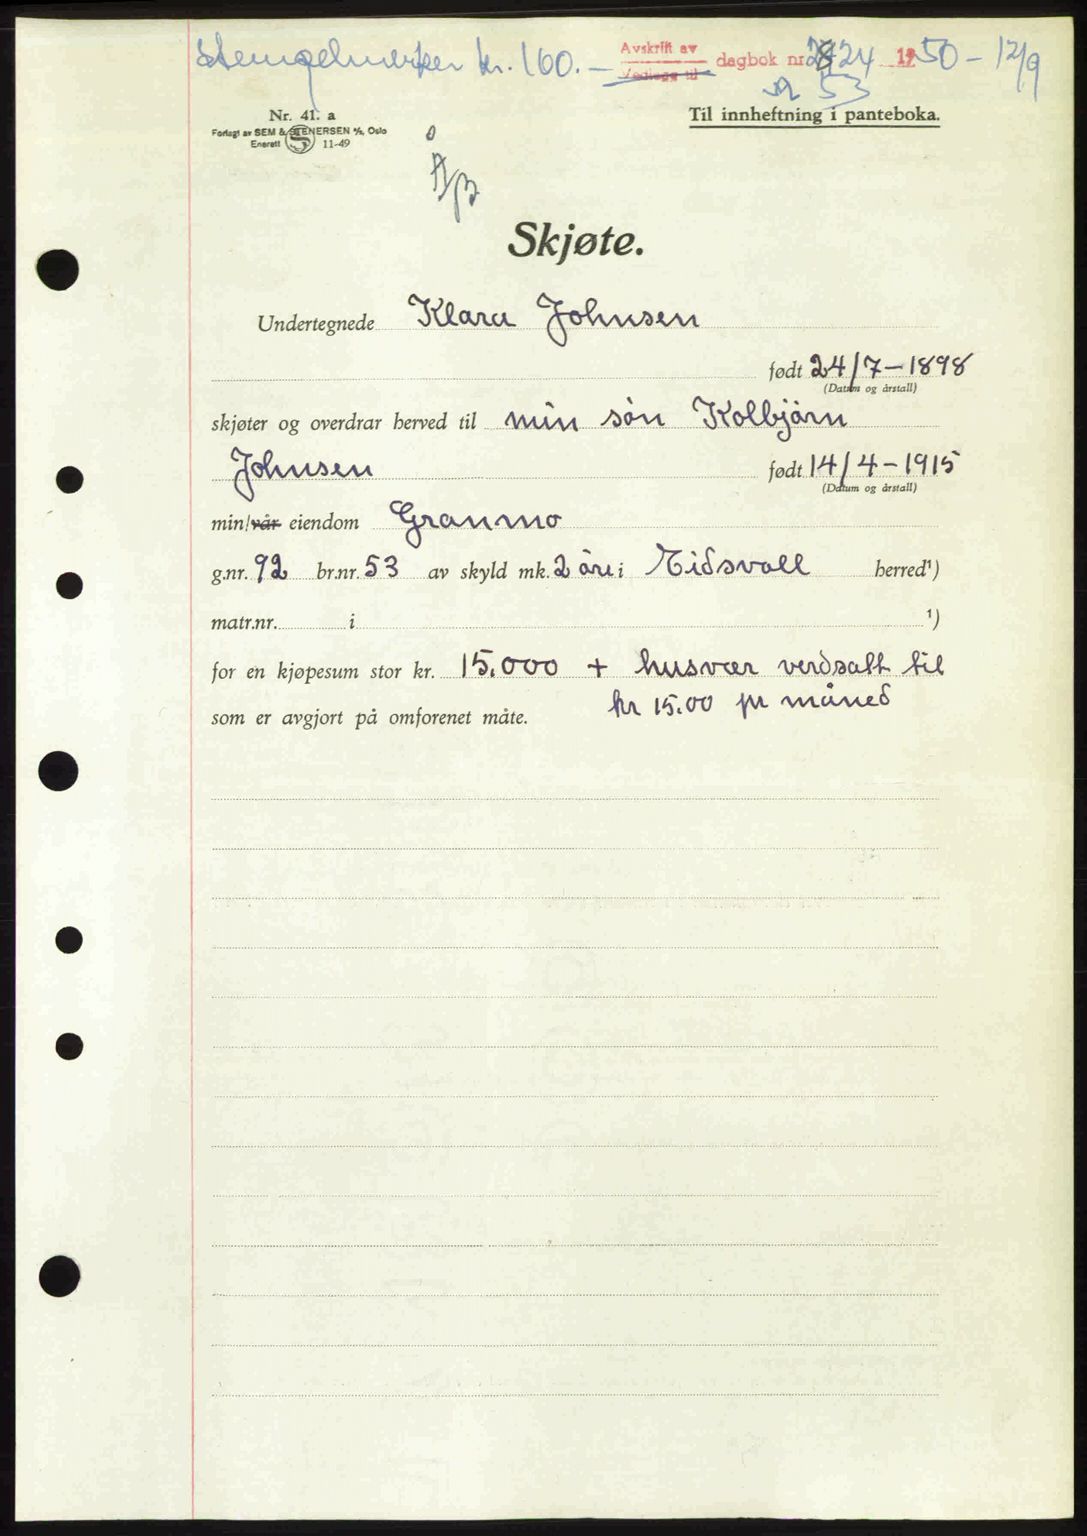 Stempelmerker kr. 160.-
Avskrift av
Vedlegg til
dagbok nr. 2824 1950 - 12/9
53
Nr. 41. a
Forlagt av SEM & STENERSEN A/S, Oslo
Enerett 11-49
Til innheftning i panteboka.
Skjøte.
Undertegnede Klara Johnsen
født 24/7-1898
(Datum og årstall)
skjøter og overdrar herved til min sön Kolbjörn
Johnsen født 14/4-1915
(Datum og årstall)
min/vår eiendom Granmo
g.nr. 92 br.nr. 53 av skyld mk. 2 öre i Eidsvoll herred¹)
matr.nr. i ¹)
for en kjøpesum stor kr. 15.000 + husvær verdsatt til
kr 15.00 pr måned
som er avgjort på omforenet måte.